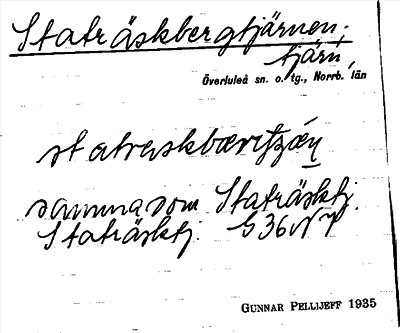 Staträskbergtjärnen,
tjärn,
Överluleå sn. o. tg., Norrb. län
samma som Staträsktj.
Staträsktj. G36
GUNNAR PELLIJEFF 1935